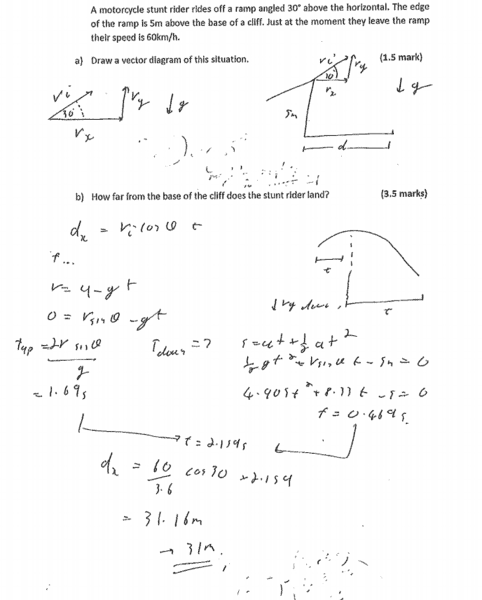 A motorcycle stunt rider rides off a ramp angled 30° above the horizontal. The edge
of the ramp is 5m above the base of a cliff. Just at the moment they leave the ramp
their speed is 60km/h.
a) Draw a vector diagram of this situation. (1.5 mark)
vi vy ↓g
30°
vx
vi vy
30° ↓g
vx
5m
d
b) How far from the base of the cliff does the stunt rider land? (3.5 marks)
dx = vi cos θ t
t...
t
v = u - gt
0 = v sin θ - gt
t
tup = 2v sin θ / g
= 1.69s
Tdown = ?
s = ut + ½ at²
½ gt² + v sin θ t - 5 = 0
4.905t² + 8.33t - 5 = 0
t = 0.469s
t = 2.159s
dx = 60/3.6 cos 30 × 2.159
= 31.16m
→ 31m.